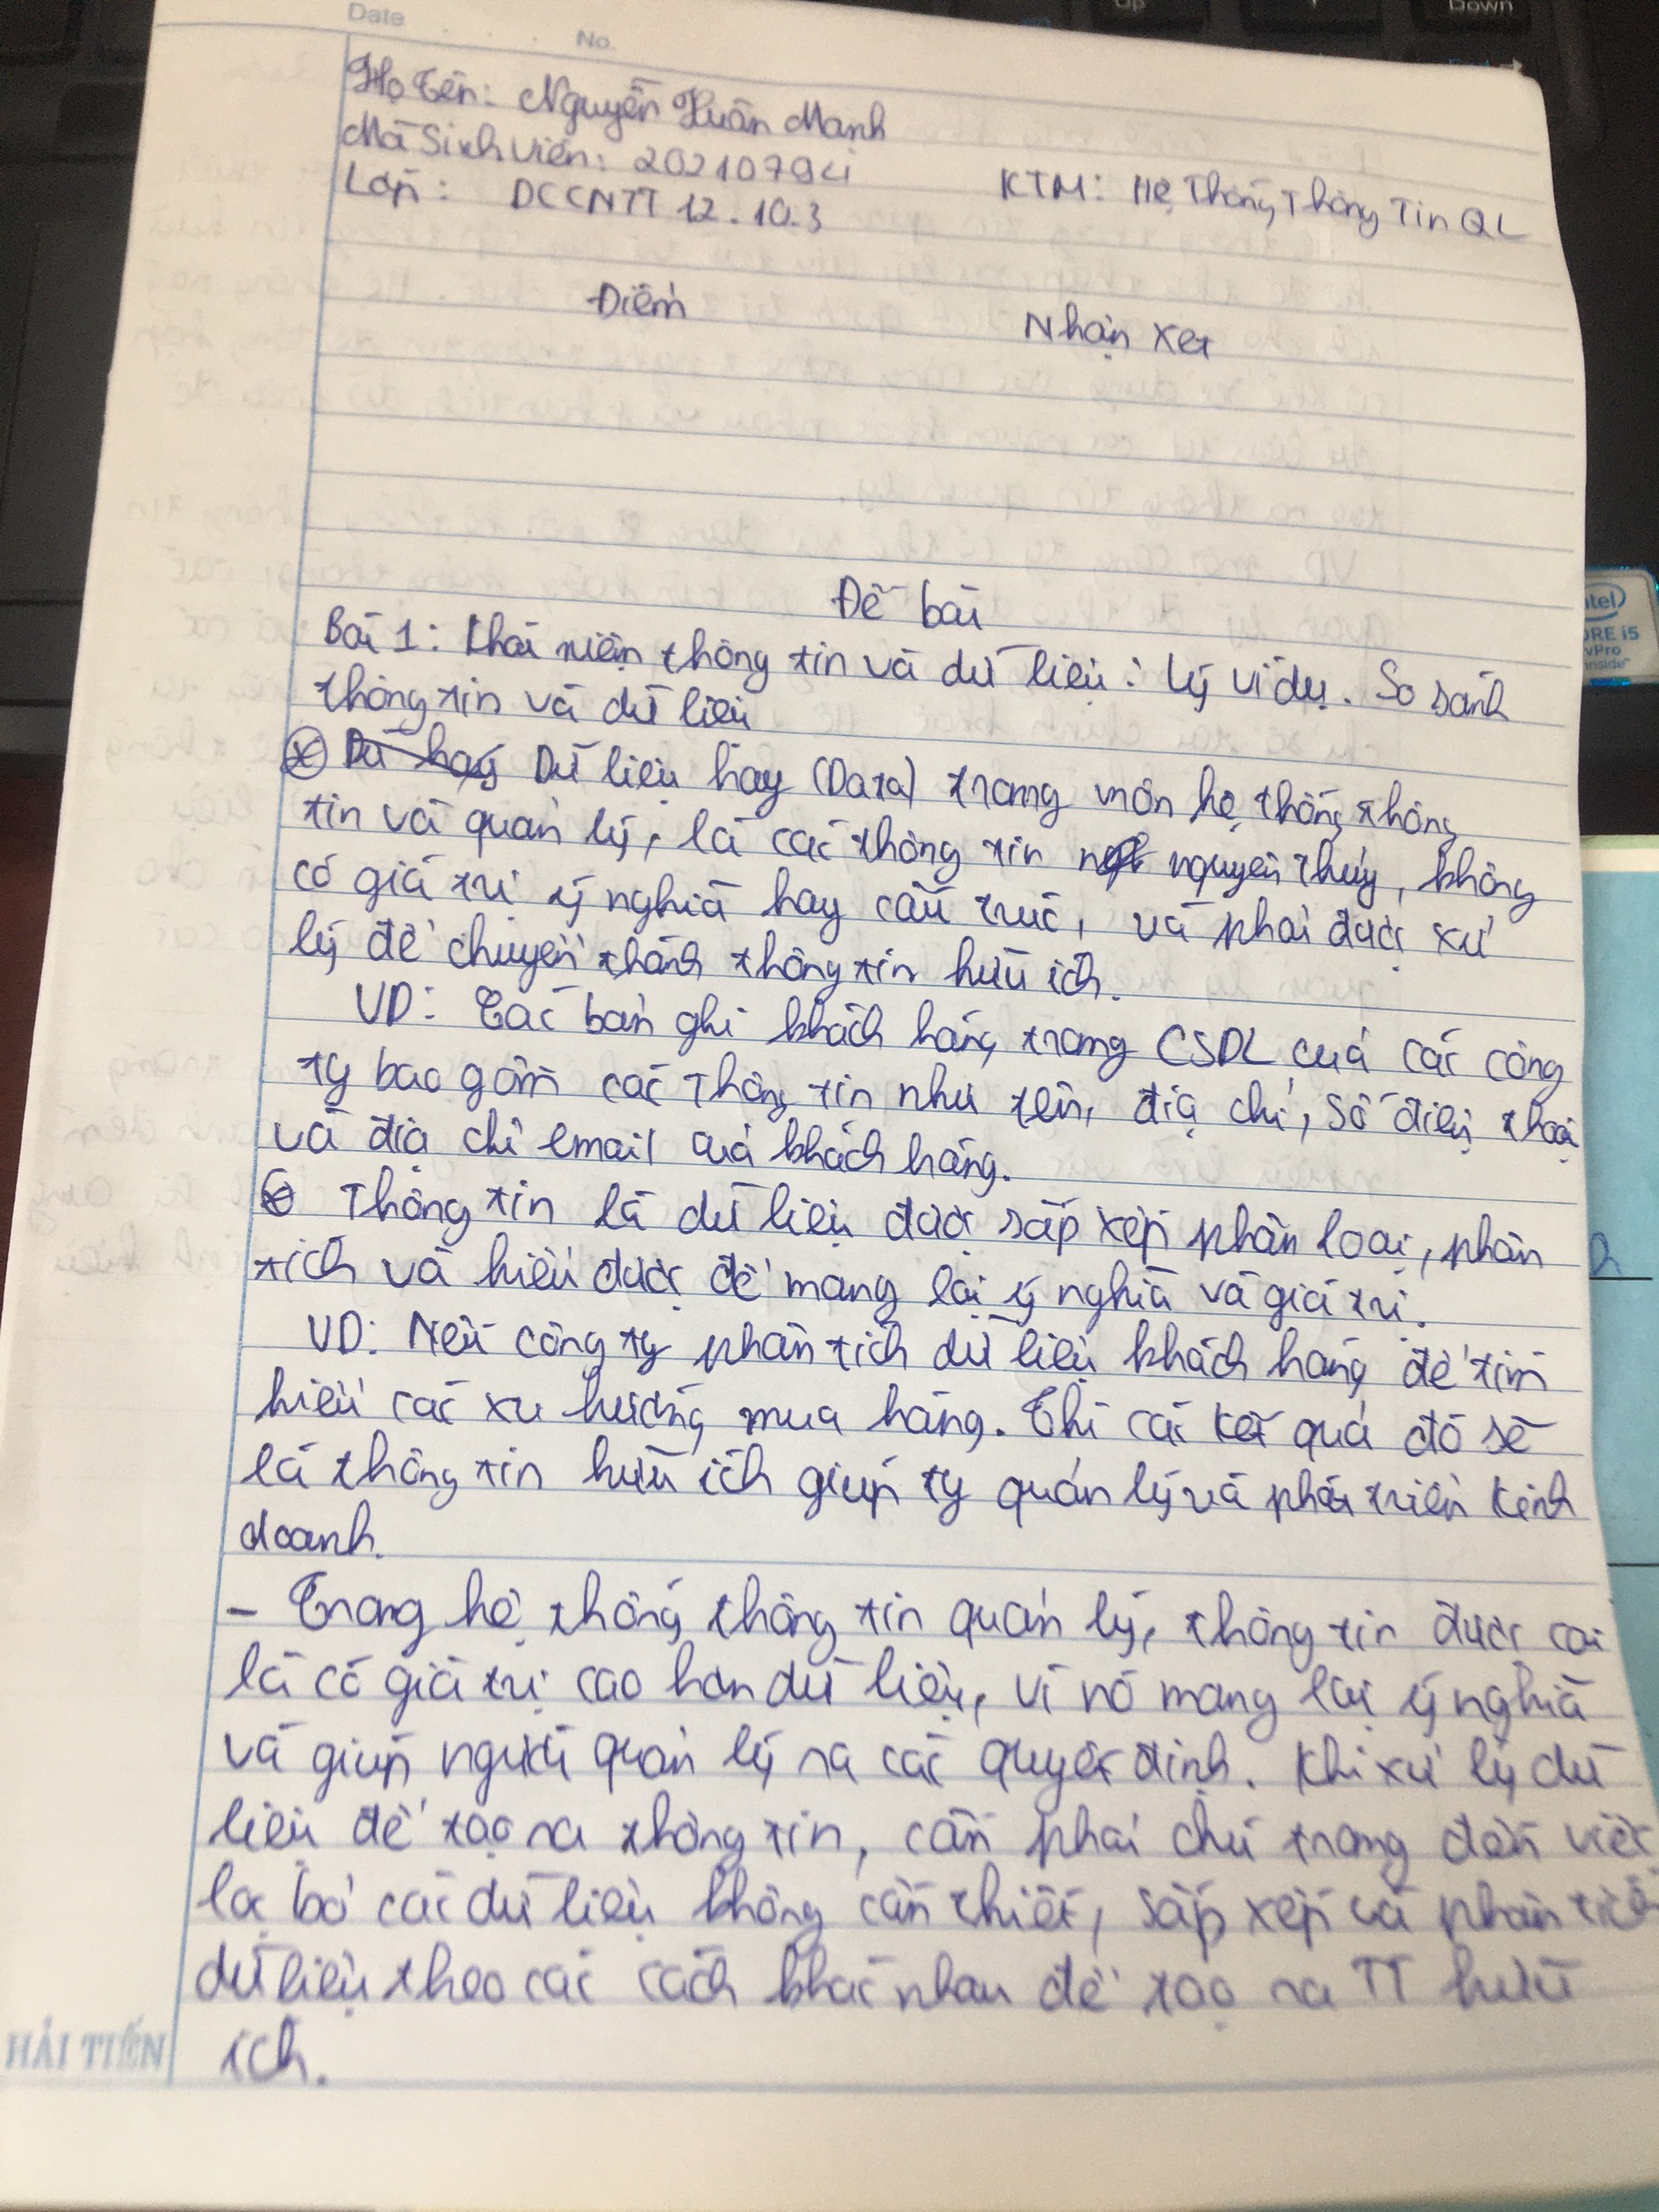 Date No.
Họ tên: Nguyễn Xuân Mạnh
Mã Sinh viên: 20210794
Lớp: DCCNTT 12.10.3 KTM: Hệ Thống Thông Tin QL
Điểm Nhận xét
Đề bài
Bài 1: Khái niệm thông tin và dữ liệu: Lý ví dụ. So sánh
thông tin và dữ liệu
Dữ hay Dữ liệu hay (Data) trong môn hệ thống thông
tin và quản lý, là các thông tin nguyên thủy, không
có giá trị ý nghĩa hay cấu trúc, và phải được xử
lý để chuyển thành thông tin hữu ích.
VD: Các bản ghi khách hàng trong CSDL của các công
ty bao gồm các thông tin như tên, địa chỉ, số điện thoại
và địa chỉ email của khách hàng.
Thông tin là dữ liệu được sắp xếp phân loại, phân
tích và hiểu được để mang lại ý nghĩa và giá trị.
VD: Nếu công ty phân tích dữ liệu khách hàng để tìm
hiểu các xu hướng mua hàng. Thì các kết quả đó sẽ
là thông tin hữu ích giúp ty quản lý và phát triển kinh
doanh.
- Trong hệ thống thông tin quản lý, thông tin được coi
là có giá trị cao hơn dữ liệu, vì nó mang lại ý nghĩa
và giúp người quản lý ra các quyết định. Khi xử lý dữ
liệu để tạo ra thông tin, cần phải chú trọng đến việc
lọc bỏ các dữ liệu không cần thiết, sắp xếp và phân tích
dữ liệu theo các cách khác nhau để tạo ra TT hữu
ích.
HẢI TIẾN
intel
CORE i5
vPro
inside
Up
Down